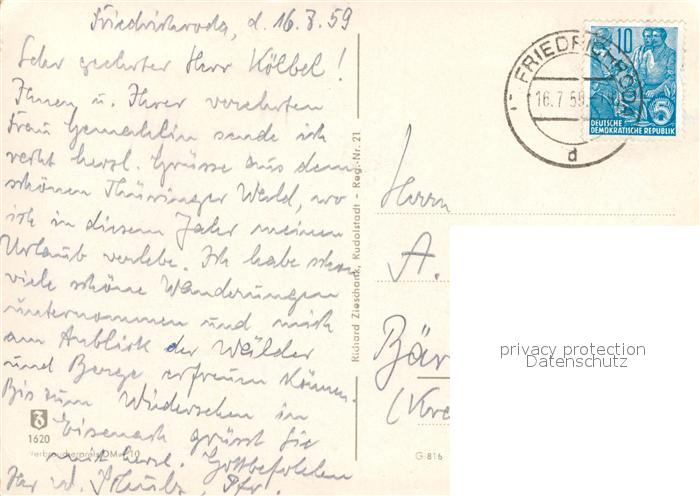 Friedrichroda, d. 16.7.59
Sehr geehrter Herr Kölbel!
Ihnen u. Ihrer verehrten
Frau Gemahlin sende ich
recht herzl. Grüsse aus dem
schönen Thüringer Wald, wo
ich in diesem Jahr meinen
Urlaub verlebe. Ich habe schon
viele schöne Wanderungen
unternommen und mich
am Anblick der Wälder
und Berge erfreuen können.
Bis zum Wiedersehen in
Eisenach grüsst Sie
mit herzl. Gottbefohlen
Ihr
Pfr.
1620
Verbraucherpreis DM
Richard Zieschank, Rudolstadt - Reg.-Nr. 21
G 816
FRIEDRICHRODA
16.7.59
d
10
DEUTSCHE
DEMOKRATISCHE REPUBLIK
Herrn
A.
Bär
(Kre
privacy protection
Datenschutz